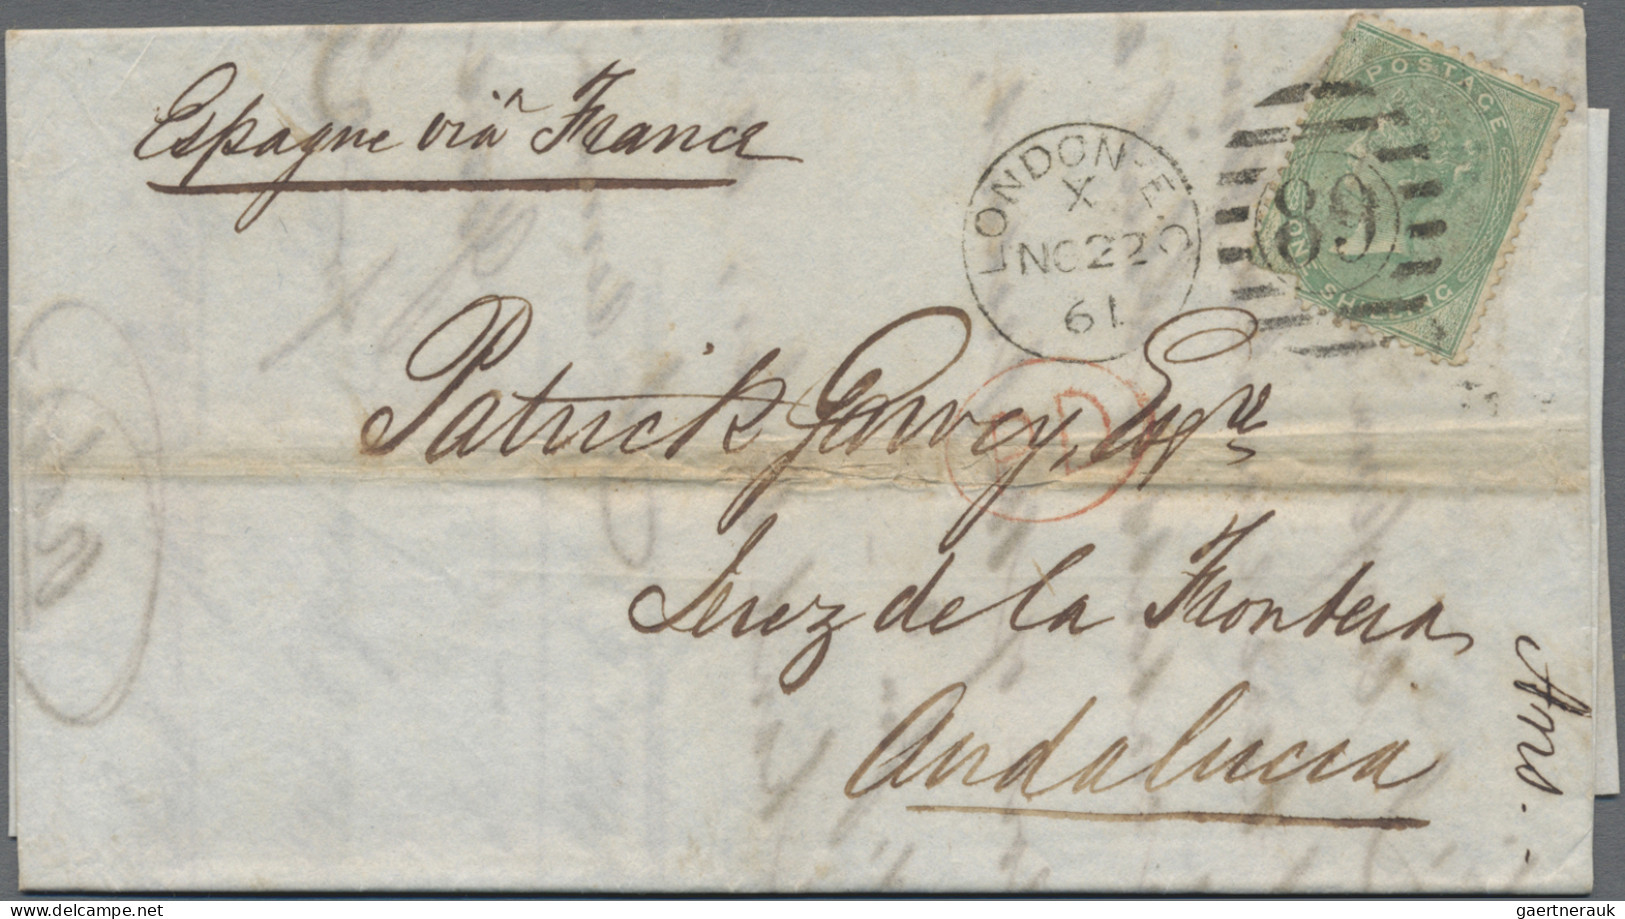 Espagne viâ France
POSTAGE
ONE
SHILLING
LONDON-E.C
X
NO 22
61
89
PD
Patrick Garvey, Esqre
Jerez de la Frontera
Andalucia
Ans.
delcampe.net
gaertnerauk